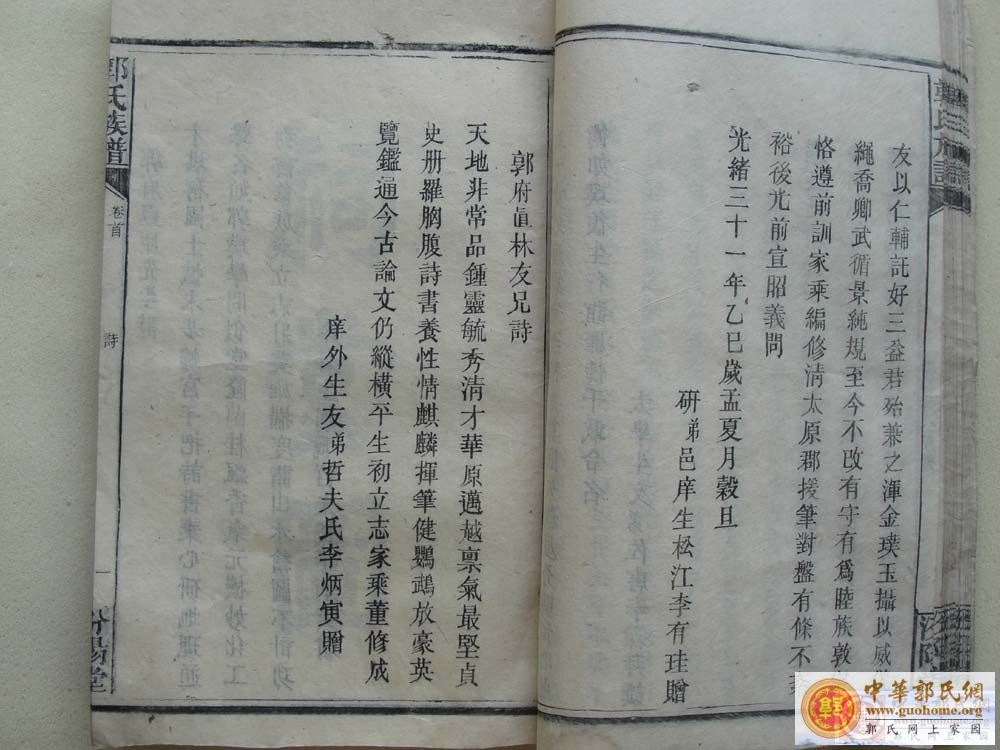 友以仁輔託好三益君殆兼之渾金璞玉攝以威
繩喬卿武循景純規至今不改有守有為睦族敦
恪遵前訓家乘編修淸太原郡援筆對盤有條不
裕後光前宣昭義問
光緒三十一年乙巳歲孟夏月穀旦
硏弟邑庠生松江李有珪贈
郭府眞林友兄詩
天地非常品鍾靈毓秀淸才華原邁越禀氣最堅貞
史册羅胸腹詩書養性情麒麟揮筆健鸚鵡放豪英
覽鑑通今古論文仍縱橫平生初立志家乘董修成
庠外生友弟哲夫氏李炳寅贈
郭氏族譜
卷首
詩
一
汾陽堂
中華郭氏網
www.guohome.org
郭氏网上家园